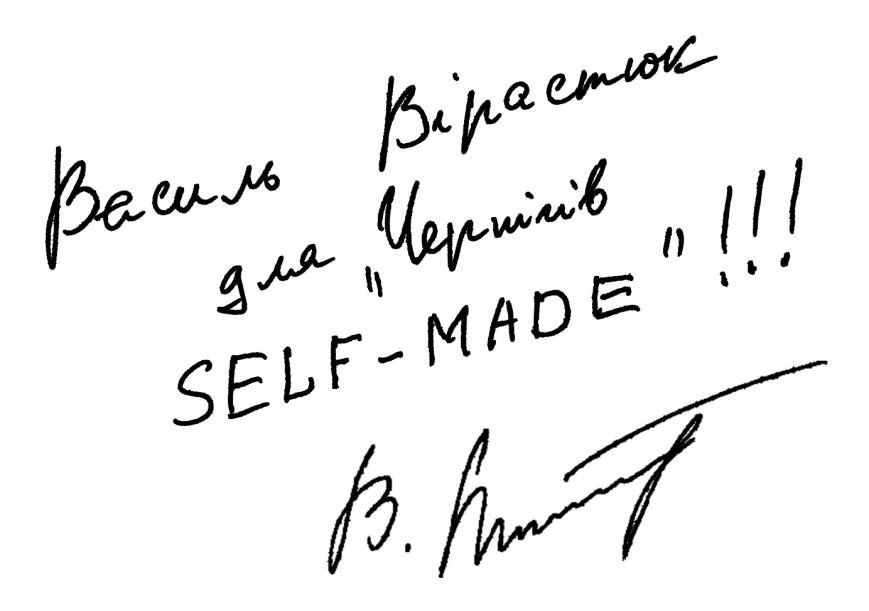 Василь Вірастюк
для "Чернігів
SELF-MADE"!!!
В.